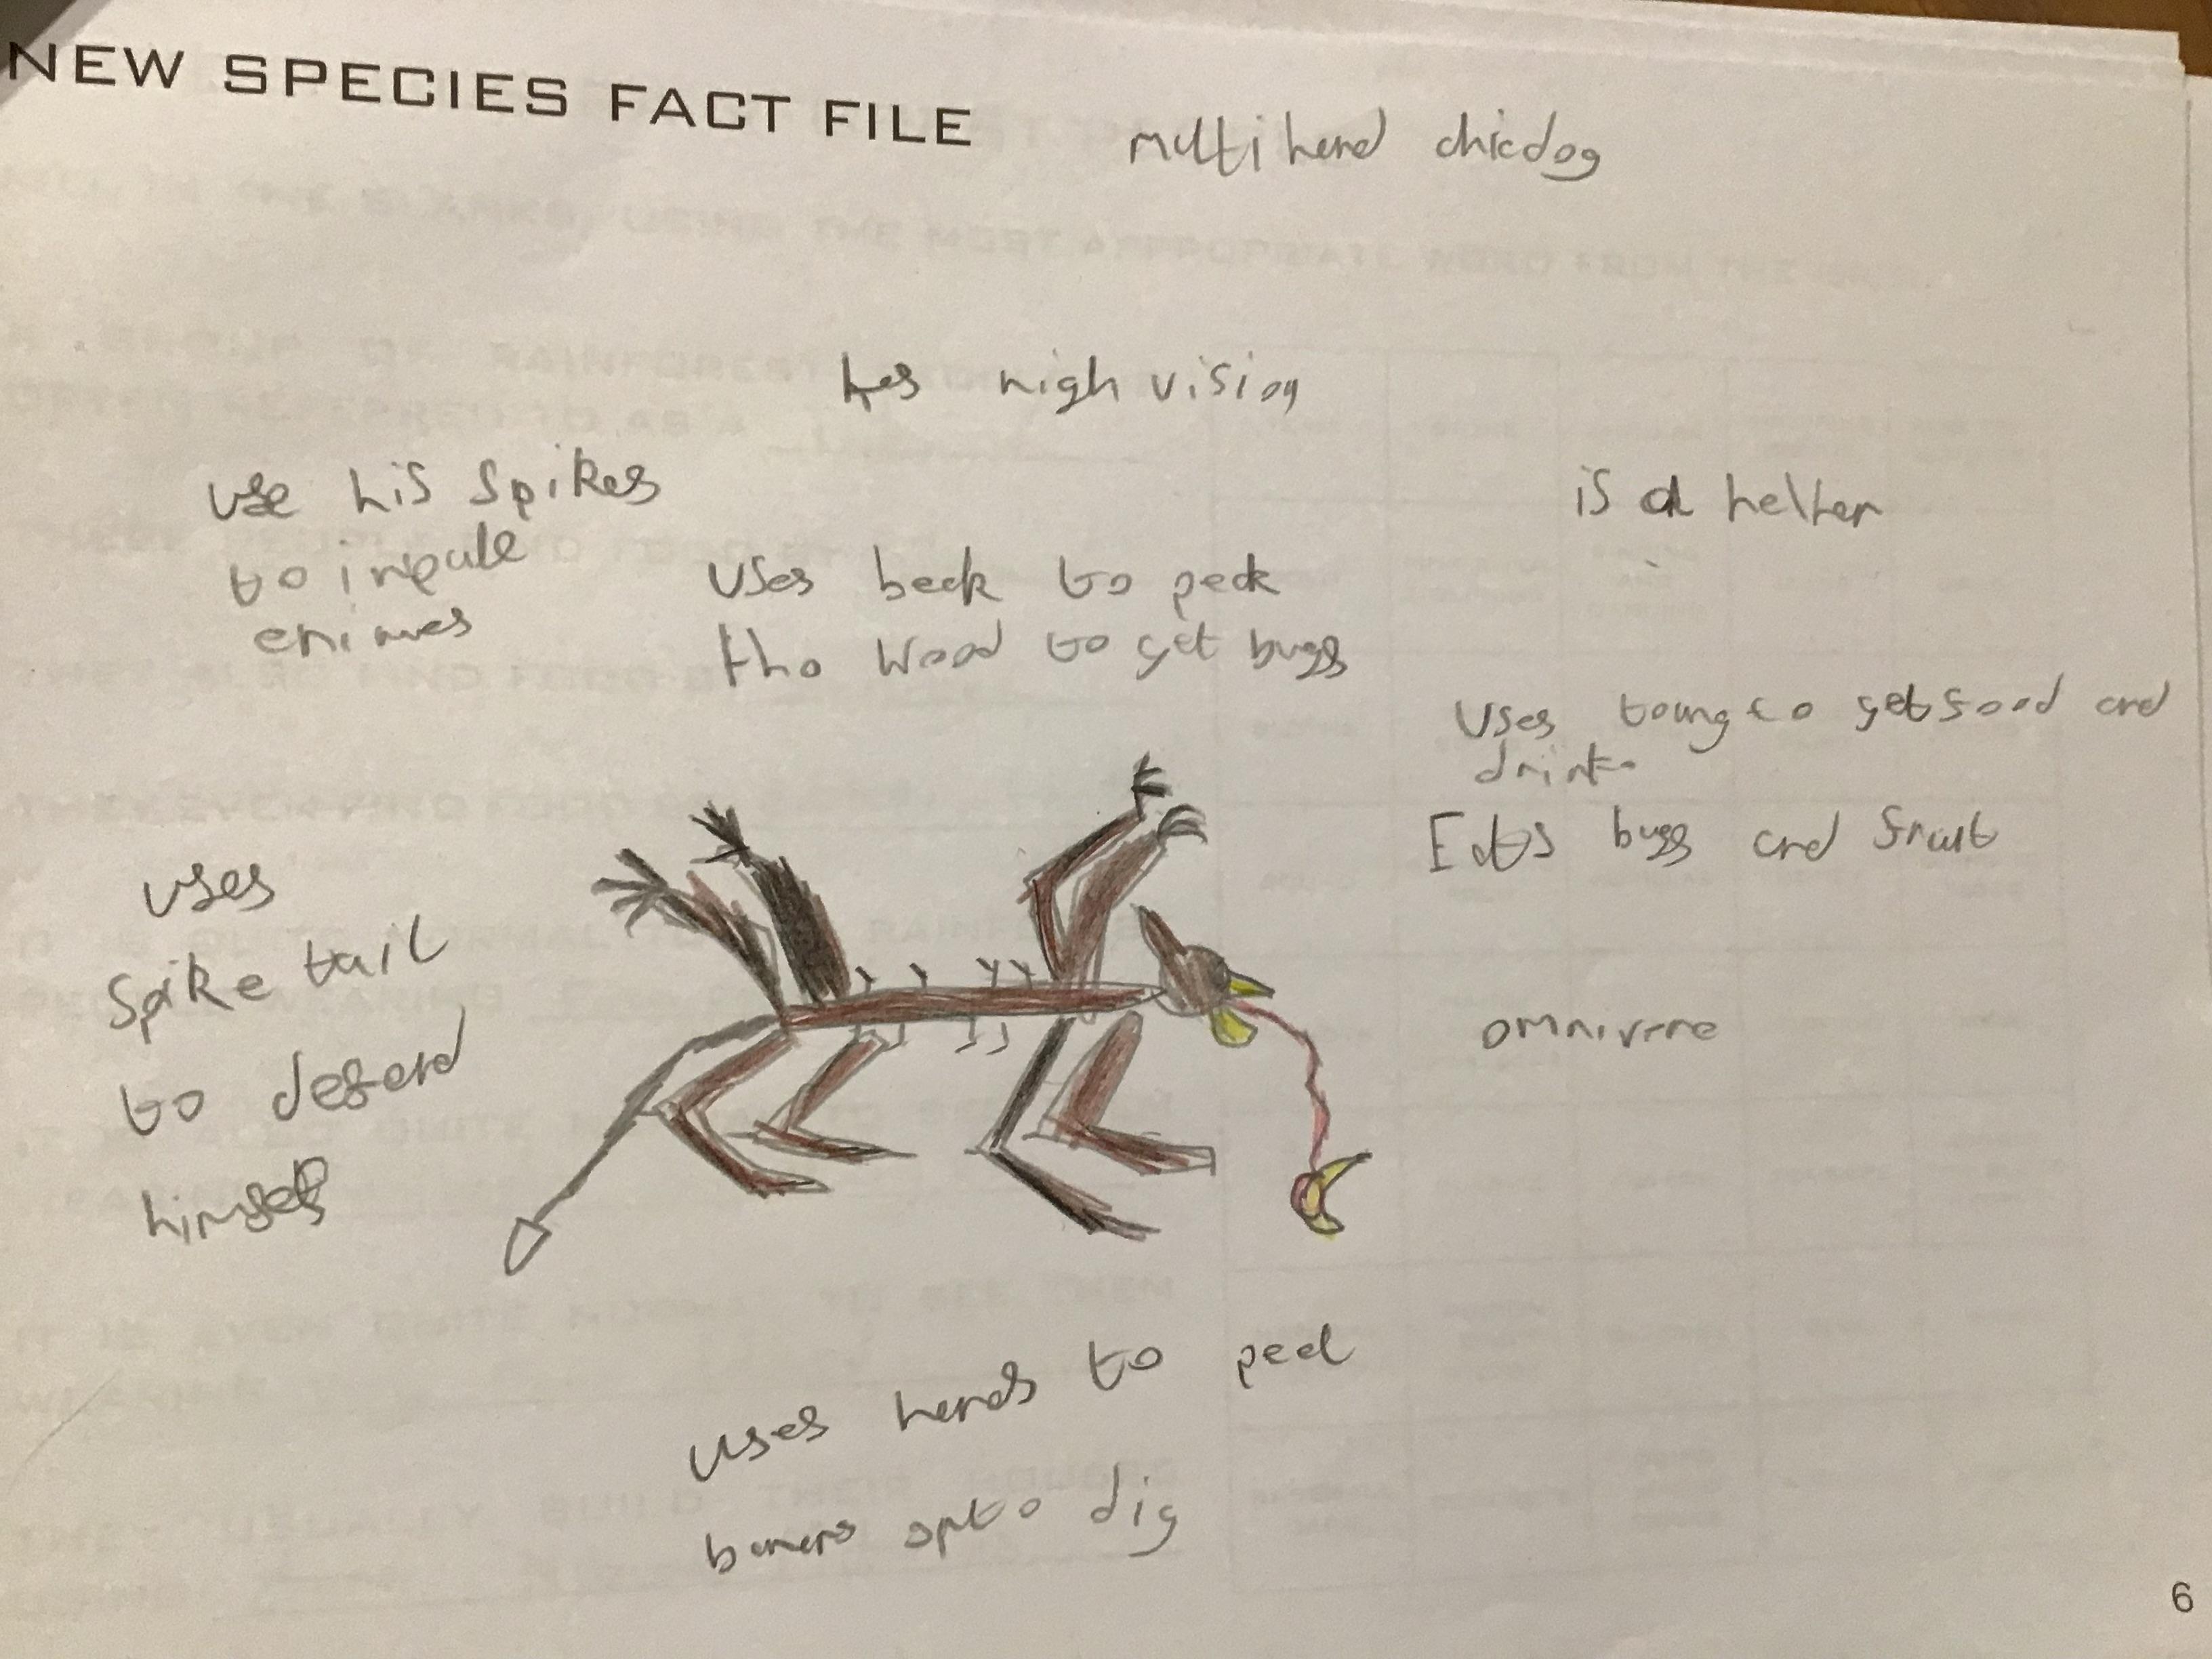 NEW SPECIES FACT FILE
multi hand chicdog
has nigh vision
use his spikes
to inpale
enimes
uses beck to peck
tho wood to get bugs
is a helter
uses toung to get food and
drink
Eats bugs and fruit
uses
spike tail
to defend
himself
omnivrre
uses hands to peel
to dig
6